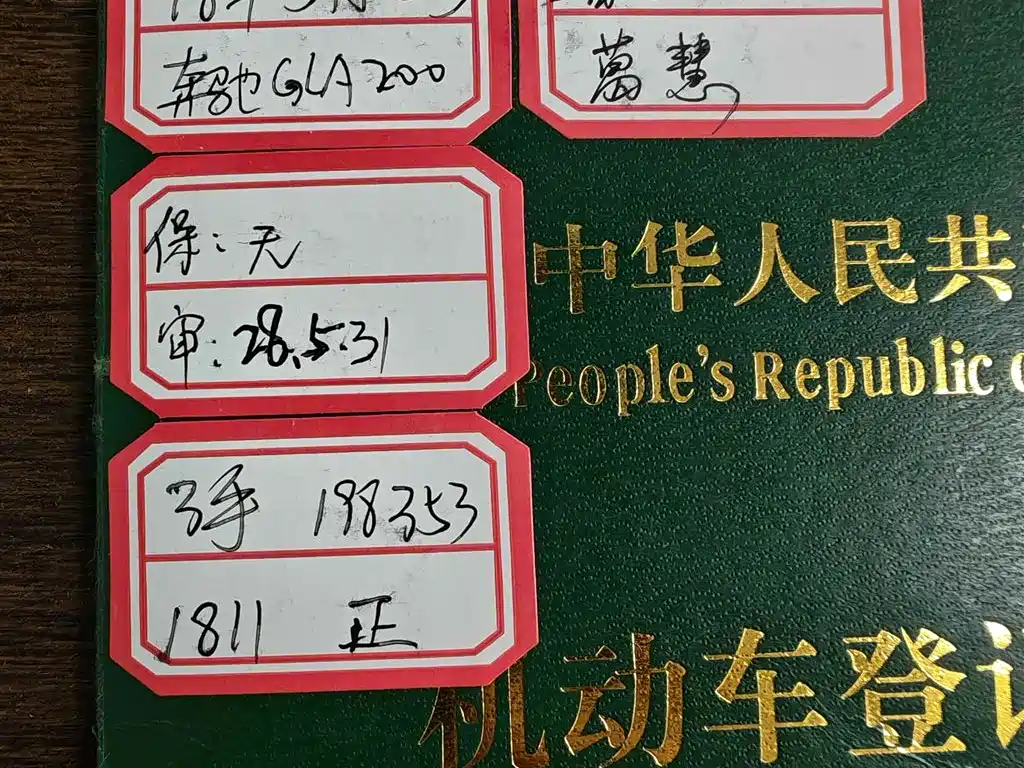 奔驰GLA200
萬慧
保:无
审:28.5.31
3手 198353
1811 正
中华人民共
People's Republic
机动车登